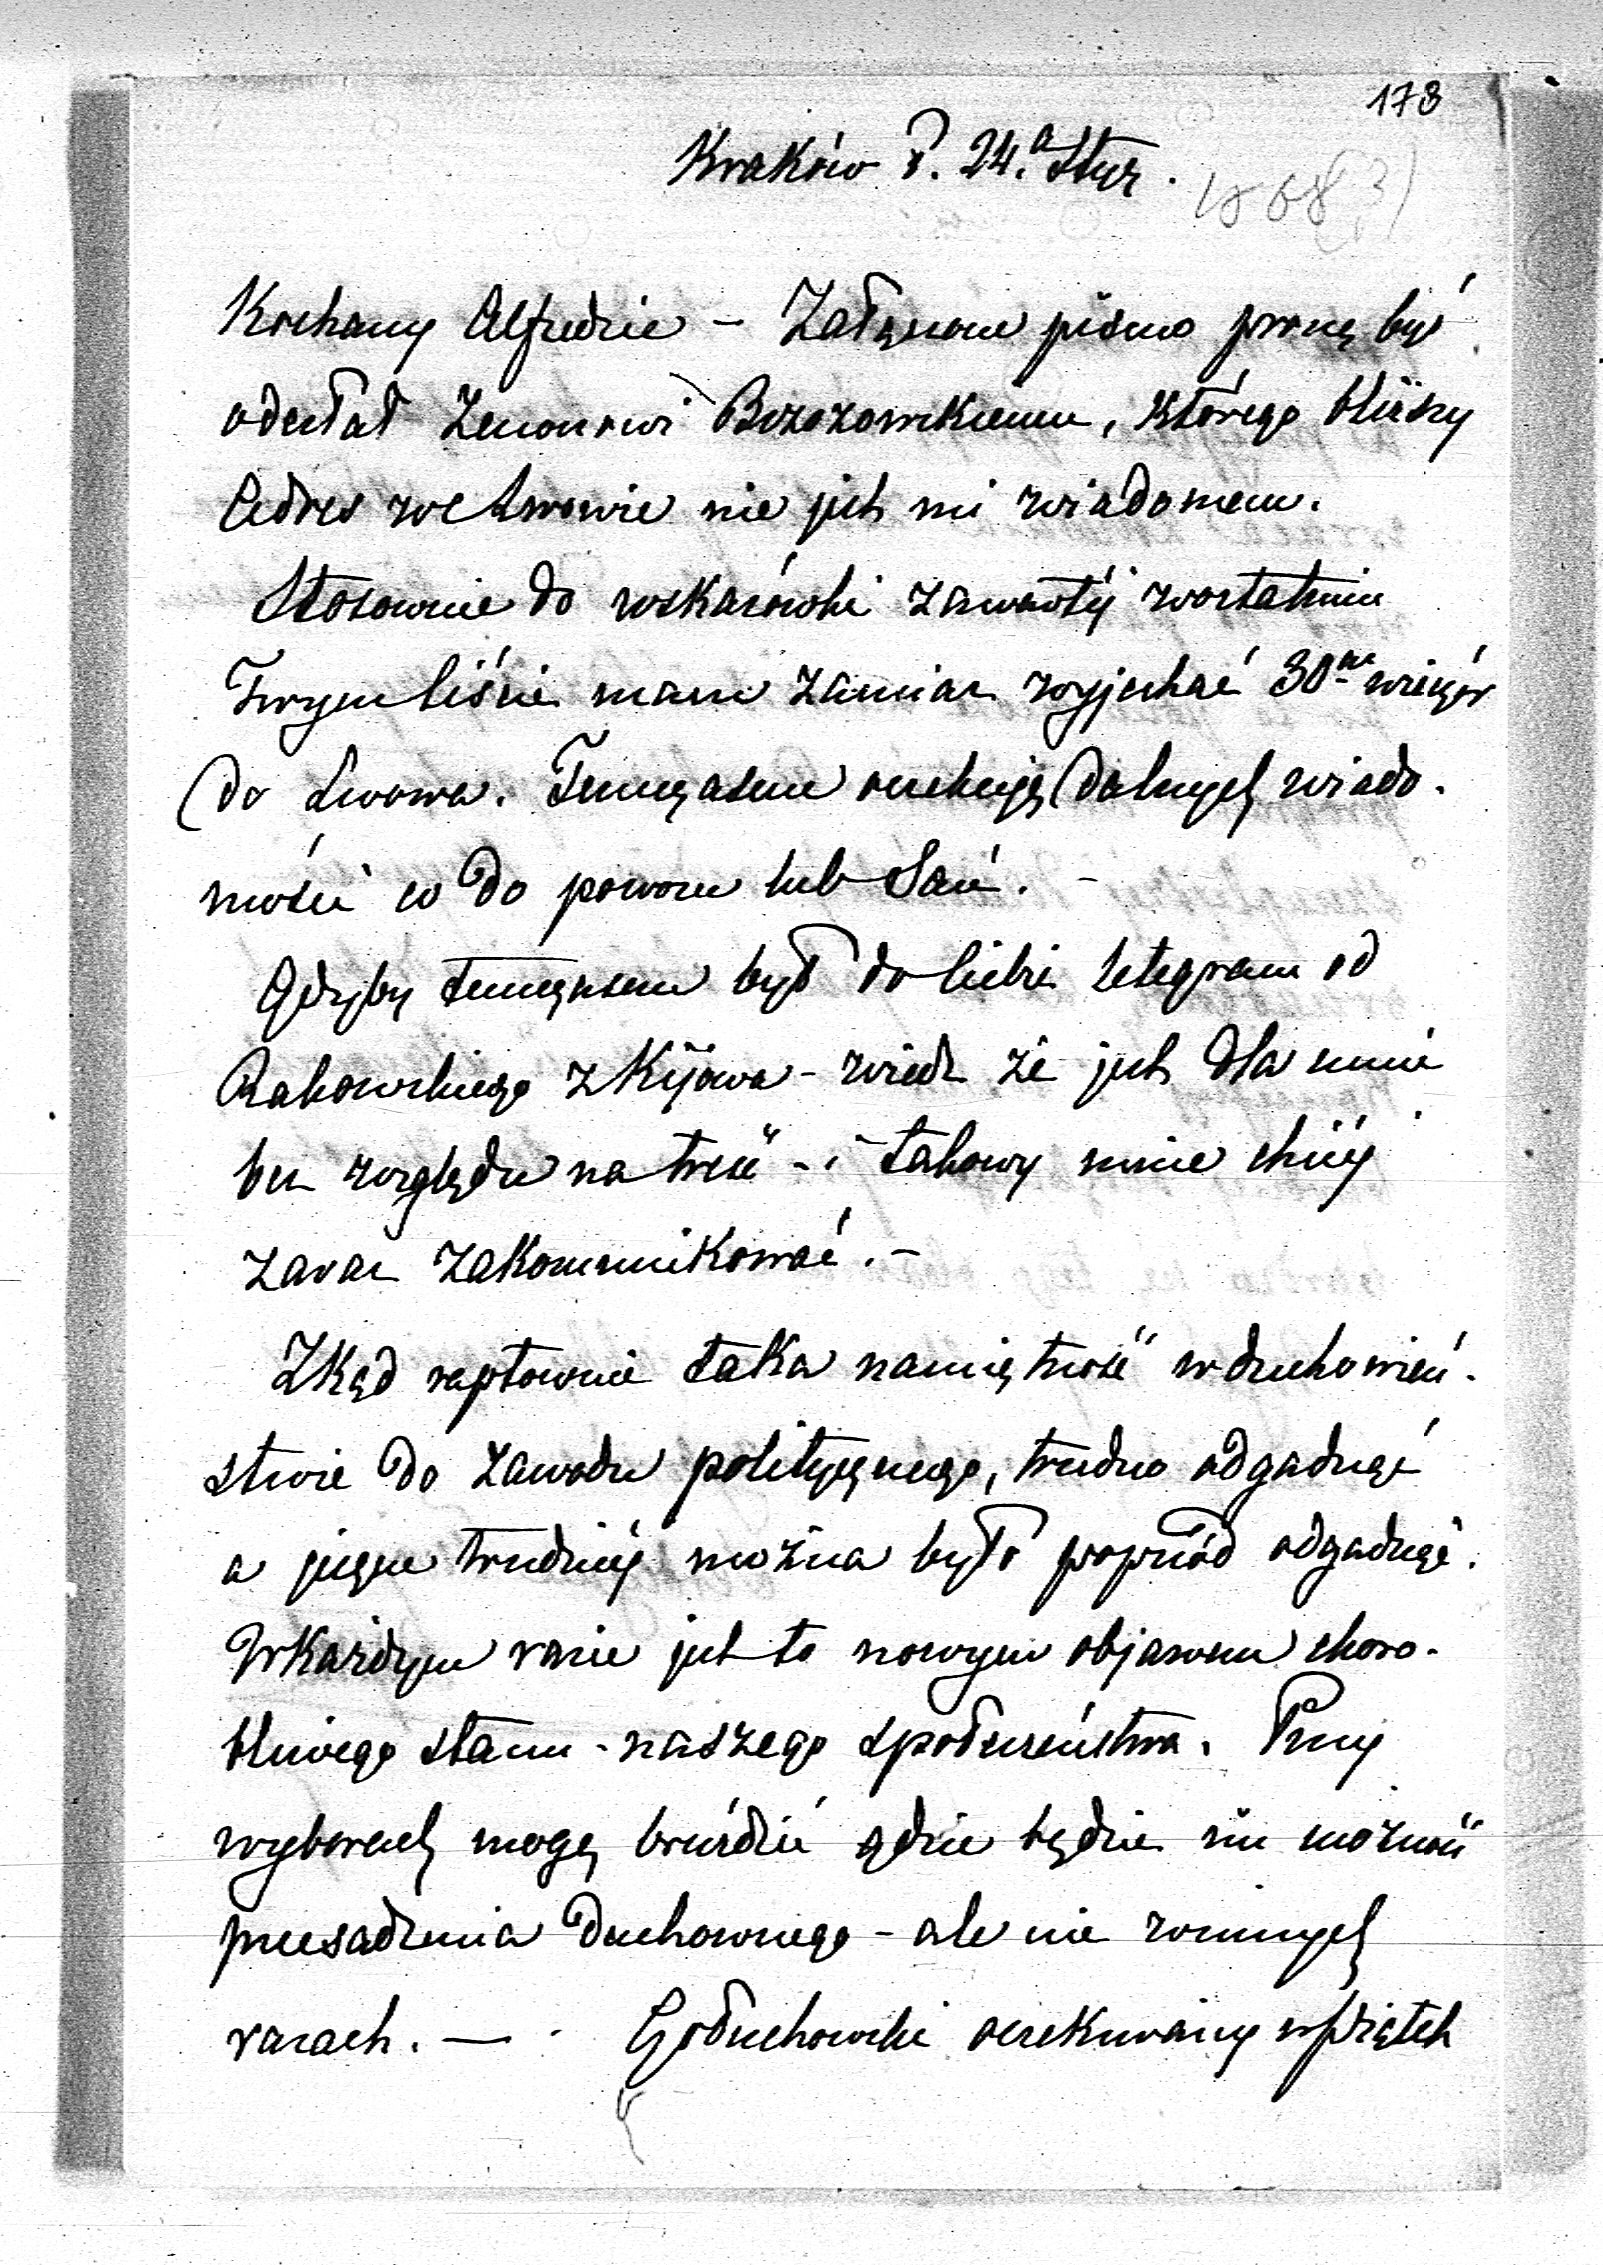 178
Kraków d. 24.a Stycz.
1868(?)
Kochany Alfredzie – Załączone pismo proszę byś
odesłał Zenonowi Brzozowskiemu, którego bliższy
Adres we Lwowie nie jest mi wiadomem.
Stosownie do wskazówki zawartéj w ostatnim
Twym liście mam zamiar wyjechać 30go wieczór
do Lwowa. Tymczasem oczekuję dalszych wiado-
mości co do powozu lub Sań. –
Gdyby tymczasem był do Ciebie telegram od
Rakowskiego z Kijowa – wiedz że jest dla mnie
bez względu na treść – i takowy mnie chciéj
zaraz zakomunikować. –
Zkąd raptownie taka namiętność w duchowień-
stwie do zawodu politycznego, trudno odgadnąć
a jeszcze trudniéj można było poprzód odgadnąć.
W każdym razie jest to nowym objawem choro-
bliwego stanu naszego społeczeństwa. Przy
wyborach mogą bruździć gdzie będzie im możność
przesadzenia Duchownego – ale nie w innych
razach. — Gołuchowski oczekiwany w Piątek